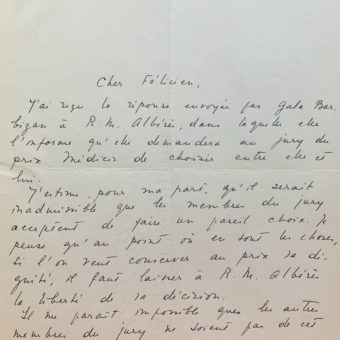 Cher Félicien,
J'ai reçu la réponse envoyée par Gala Bar-
bizan à R. M. Albérès, dans laquelle elle
l'informe qu'elle demandera au jury du
prix Médicis de choisir entre elle et
lui.
J'estime, pour ma part, qu'il serait
inadmissible que les membres du jury
acceptent de faire un pareil choix. Je
pense qu'au point où en sont les choses,
si l'on veut conserver au prix sa di-
gnité, il faut laisser à R. M. Albérès
la liberté de sa décision.
Il me paraît impossible que les autres
membres du jury ne soient pas de cet